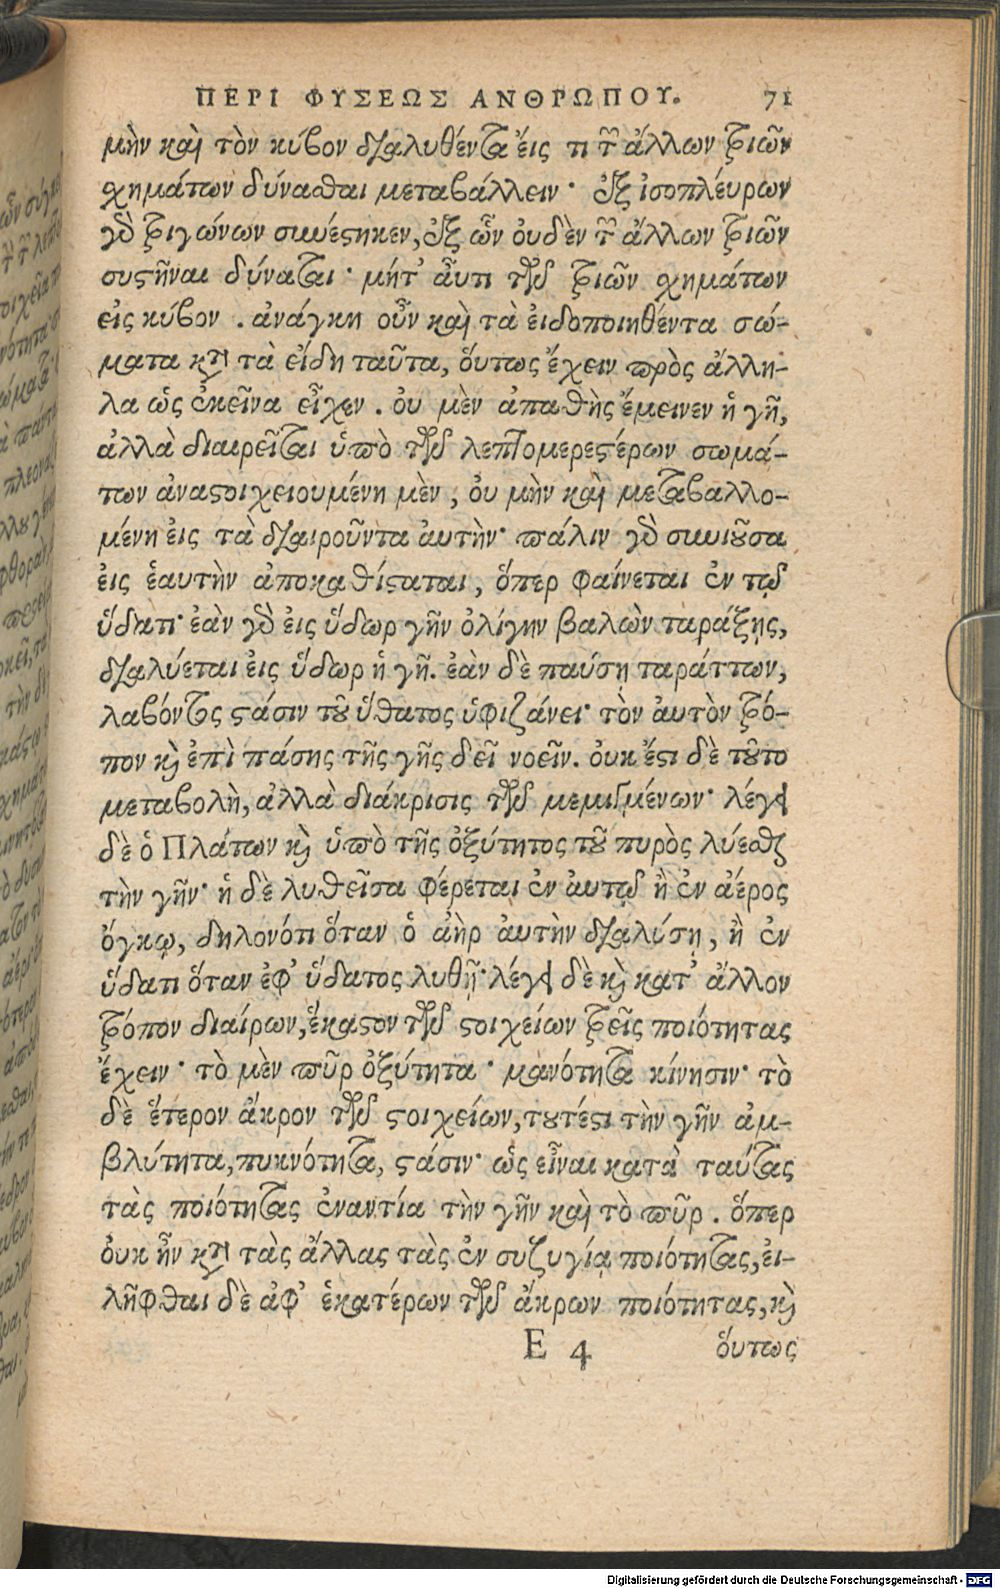 ΠΕΡΙ ΦΥΣΕΩΣ ΑΝΘΡΩΠΟΥ. 71
μὴν καὶ τὸν κύβον διαλυθέντα ἐίς τι τῶν ἄλλων τριῶν
σχημάτων δύνασθαι μεταβάλλειν· ἐξ ἰσοπλέυρων
γὸ τριγώνων συνέστηκεν, ἐξ ὧν ὀυδὲν τῶν ἄλλων τριῶν
συστῆναι δύναται· μήτ’ ἀῦτι τῶν τριῶν σχημάτων
εἰς κύβον . ἀνάγκη οὖν καὶ τὰ ἐιδοποιηθέντα σώ-
ματα κτ τὰ εἴδη ταῦτα, ὅυτως ἔχειν πρὸς ἄλλη-
λα ὡς ἐκεῖνα εἶχεν . ὀυ μὲν ἀπαθὴς ἔμεινεν ἡ γῆ,
ἀλλὰ διαιρεῖται ὑπὸ τῶν λεπτομερεστέρων σωμά-
των ἀναστοιχειουμένη μὲν , ὀυ μὴν καὶ μεταβαλλο-
μένη ἐις τὰ διαιροῦντα ἀυτήν· πάλιν γὸ συνιοῦσα
ἐις ἑαυτὴν ἀποκαθίσταται, ὅπερ φαίνεται ἐν τῷ
ὕδατι· ἐὰν γὸ ἐις ὕδωρ γῆν ὀλίγην βαλὼν ταράξῃς,
διαλύεται ἐις ὕδωρ ἡ γῆ. ἐὰν δὲ παύσῃ ταράττων,
λαβόντος στάσιν τοῦ ὕδατος ὑφιζάνει· τὸν ἀυτὸν τρό-
πον κὶ ἐπὶ πάσης τῆς γῆς δεῖ νοεῖν. ὀυκ ἔστι δὲ τοῦτο
μεταβολὴ, ἀλλὰ διάκρισις τῶν μεμιγμένων· λέγει
δὲ ὁ Πλάτων κὶ ὑπὸ τῆς ὀξύτητος τοῦ πυρὸς λύεσθαι
τὴν γῆν· ἡ δὲ λυθεῖσα φέρεται ἐν ἀυτῷ ἢ ἐν ἀέρος
ὄγκῳ, δηλονότι ὅταν ὁ ἀὴρ ἀυτὴν διαλύσῃ, ἢ ἐν
ὕδατι ὅταν ἐφ’ ὕδατος λυθῇ· λέγει δὲ κὶ κατ’ ἄλλον
τρόπον διαίρων, ἕκαστον τῶν στοιχείων τρεῖς ποιότητας
ἔχειν· τὸ μὲν πῦρ ὀξύτητα· μανότητα κίνησιν· τὸ
δὲ ἕτερον ἄκρον τῶν στοιχείων, τουτέστι τὴν γῆν ἀμ-
βλύτητα, πυκνότητα, στάσιν· ὡς εἶναι κατὰ ταύτας
τὰς ποιότητας ἐναντία τὴν γῆν καὶ τὸ πῦρ . ὅπερ
ὀυκ ἦν κτ τὰς ἄλλας τὰς ἐν συζυγίᾳ ποιότητας, ἐι-
λῆφθαι δὲ ἀφ’ ἑκατέρων τῶν ἄκρων ποιότητας, κὶ
E 4 ὅυτως
Digitalisierung gefördert durch die Deutsche Forschungsgemeinschaft - DFG